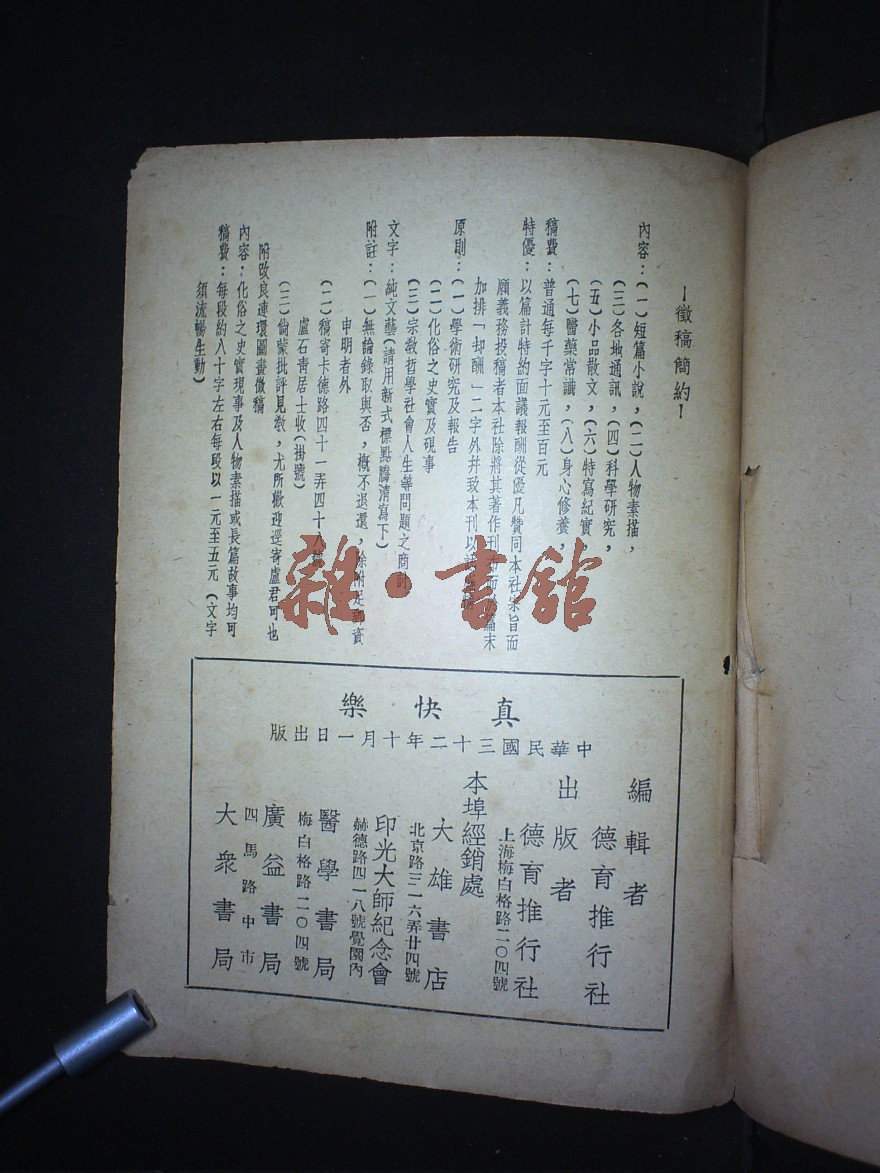 —徵稿簡約—
內容：（一）短篇小說，（二）人物素描，
（三）各地通訊，（四）科學研究，
（五）小品散文，（六）特寫紀實
（七）醫藥常識，（八）身心修養，
稿費：普通每千字十元至百元
特優：以篇計特約面議報酬從優凡贊同本社宗旨而
願義務投稿者本社除將其著作刊
篇末
加排「却酬」二字外幷致本刊以
原則：（一）學術研究及報告
（二）化俗之史實及現事
（三）宗教哲學社會人生等問題之商討
文字：純文藝（請用新式標點騰清寫下）
附註：（一）無論錄取與否，概不退還，除附足郵資
申明者外
（二）稿寄卡德路四十一弄四十八號
盧石靑居士收（掛號）
（三）倘蒙批評見教，尤所歡迎逕寄盧君可也
附改良連環圖畫徵稿
內容：化俗之史實現事及人物素描或長篇故事均可
稿費：每段約八十字左右每段以一元至五元（文字
須流暢生動）
真快樂
中華民國三十二年十月一日出版
編輯者
德育推行社
出版者
德育推行社
上海梅白格路二〇四號
本埠經銷處
大雄書店
北京路三二六弄廿四號
印光大師紀念會
赫德路四一八號覺園內
醫學書局
梅白格路二〇四號
廣益書局
四馬路中市
大衆書局
雜·書館